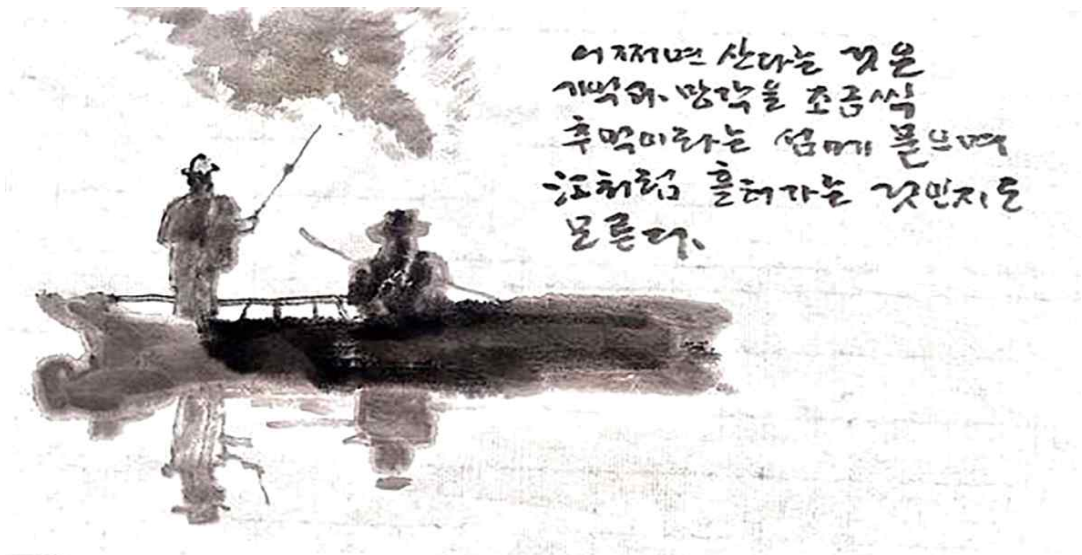 어쩌면 산다는 것은
기억과 망각을 조금씩
추억이라는 섬에 묻으며
江처럼 흘러가는 것인지도
모른다.